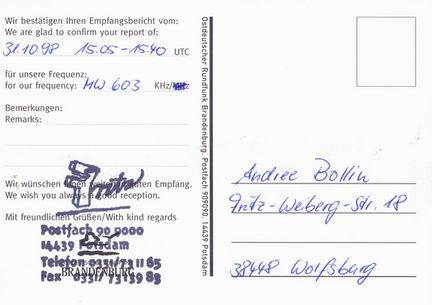 Wir bestätigen Ihren Empfangsbericht vom:
We are glad to confirm your report of:
31.10.98 15.05-15.40 UTC
für unsere Frequenz:
for our frequency: MW 603 KHz/MHz
Bemerkungen:
Remarks:
Wir wünschen Ihnen weiterhin guten Empfang.
We wish you always a good reception.
Mit freundlichen Grüßen/With kind regards
Postfach 90 9000
14439 Potsdam
Telefon 0331/731165
BRANDENBURG
Fax 0331/7313983
Ostdeutscher Rundfunk Brandenburg Postfach 909090, 14439 Potsdam
Andree Bollin
Fritz-Weiberg-Str. 18
38448 Wolfsburg